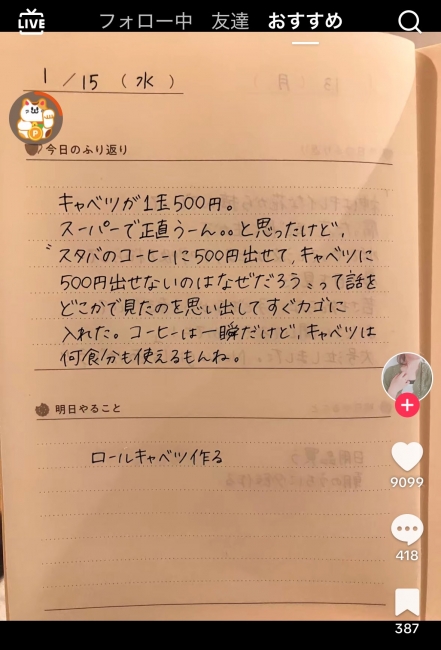 LIVE
フォロー中 友達 おすすめ
1/15（水）
今日のふり返り
キャベツが1玉500円。
スーパーで正直うーん。。と思ったけど、
〝スタバのコーヒーに500円出せて、キャベツに
500円出せないのはなぜだろう〟って話を
どこかで見たのを思い出してすぐカゴに
入れた。コーヒーは一瞬だけど、キャベツは
何食分も使えるもんね。
明日やること
ロールキャベツ作る
P
9099
418
387